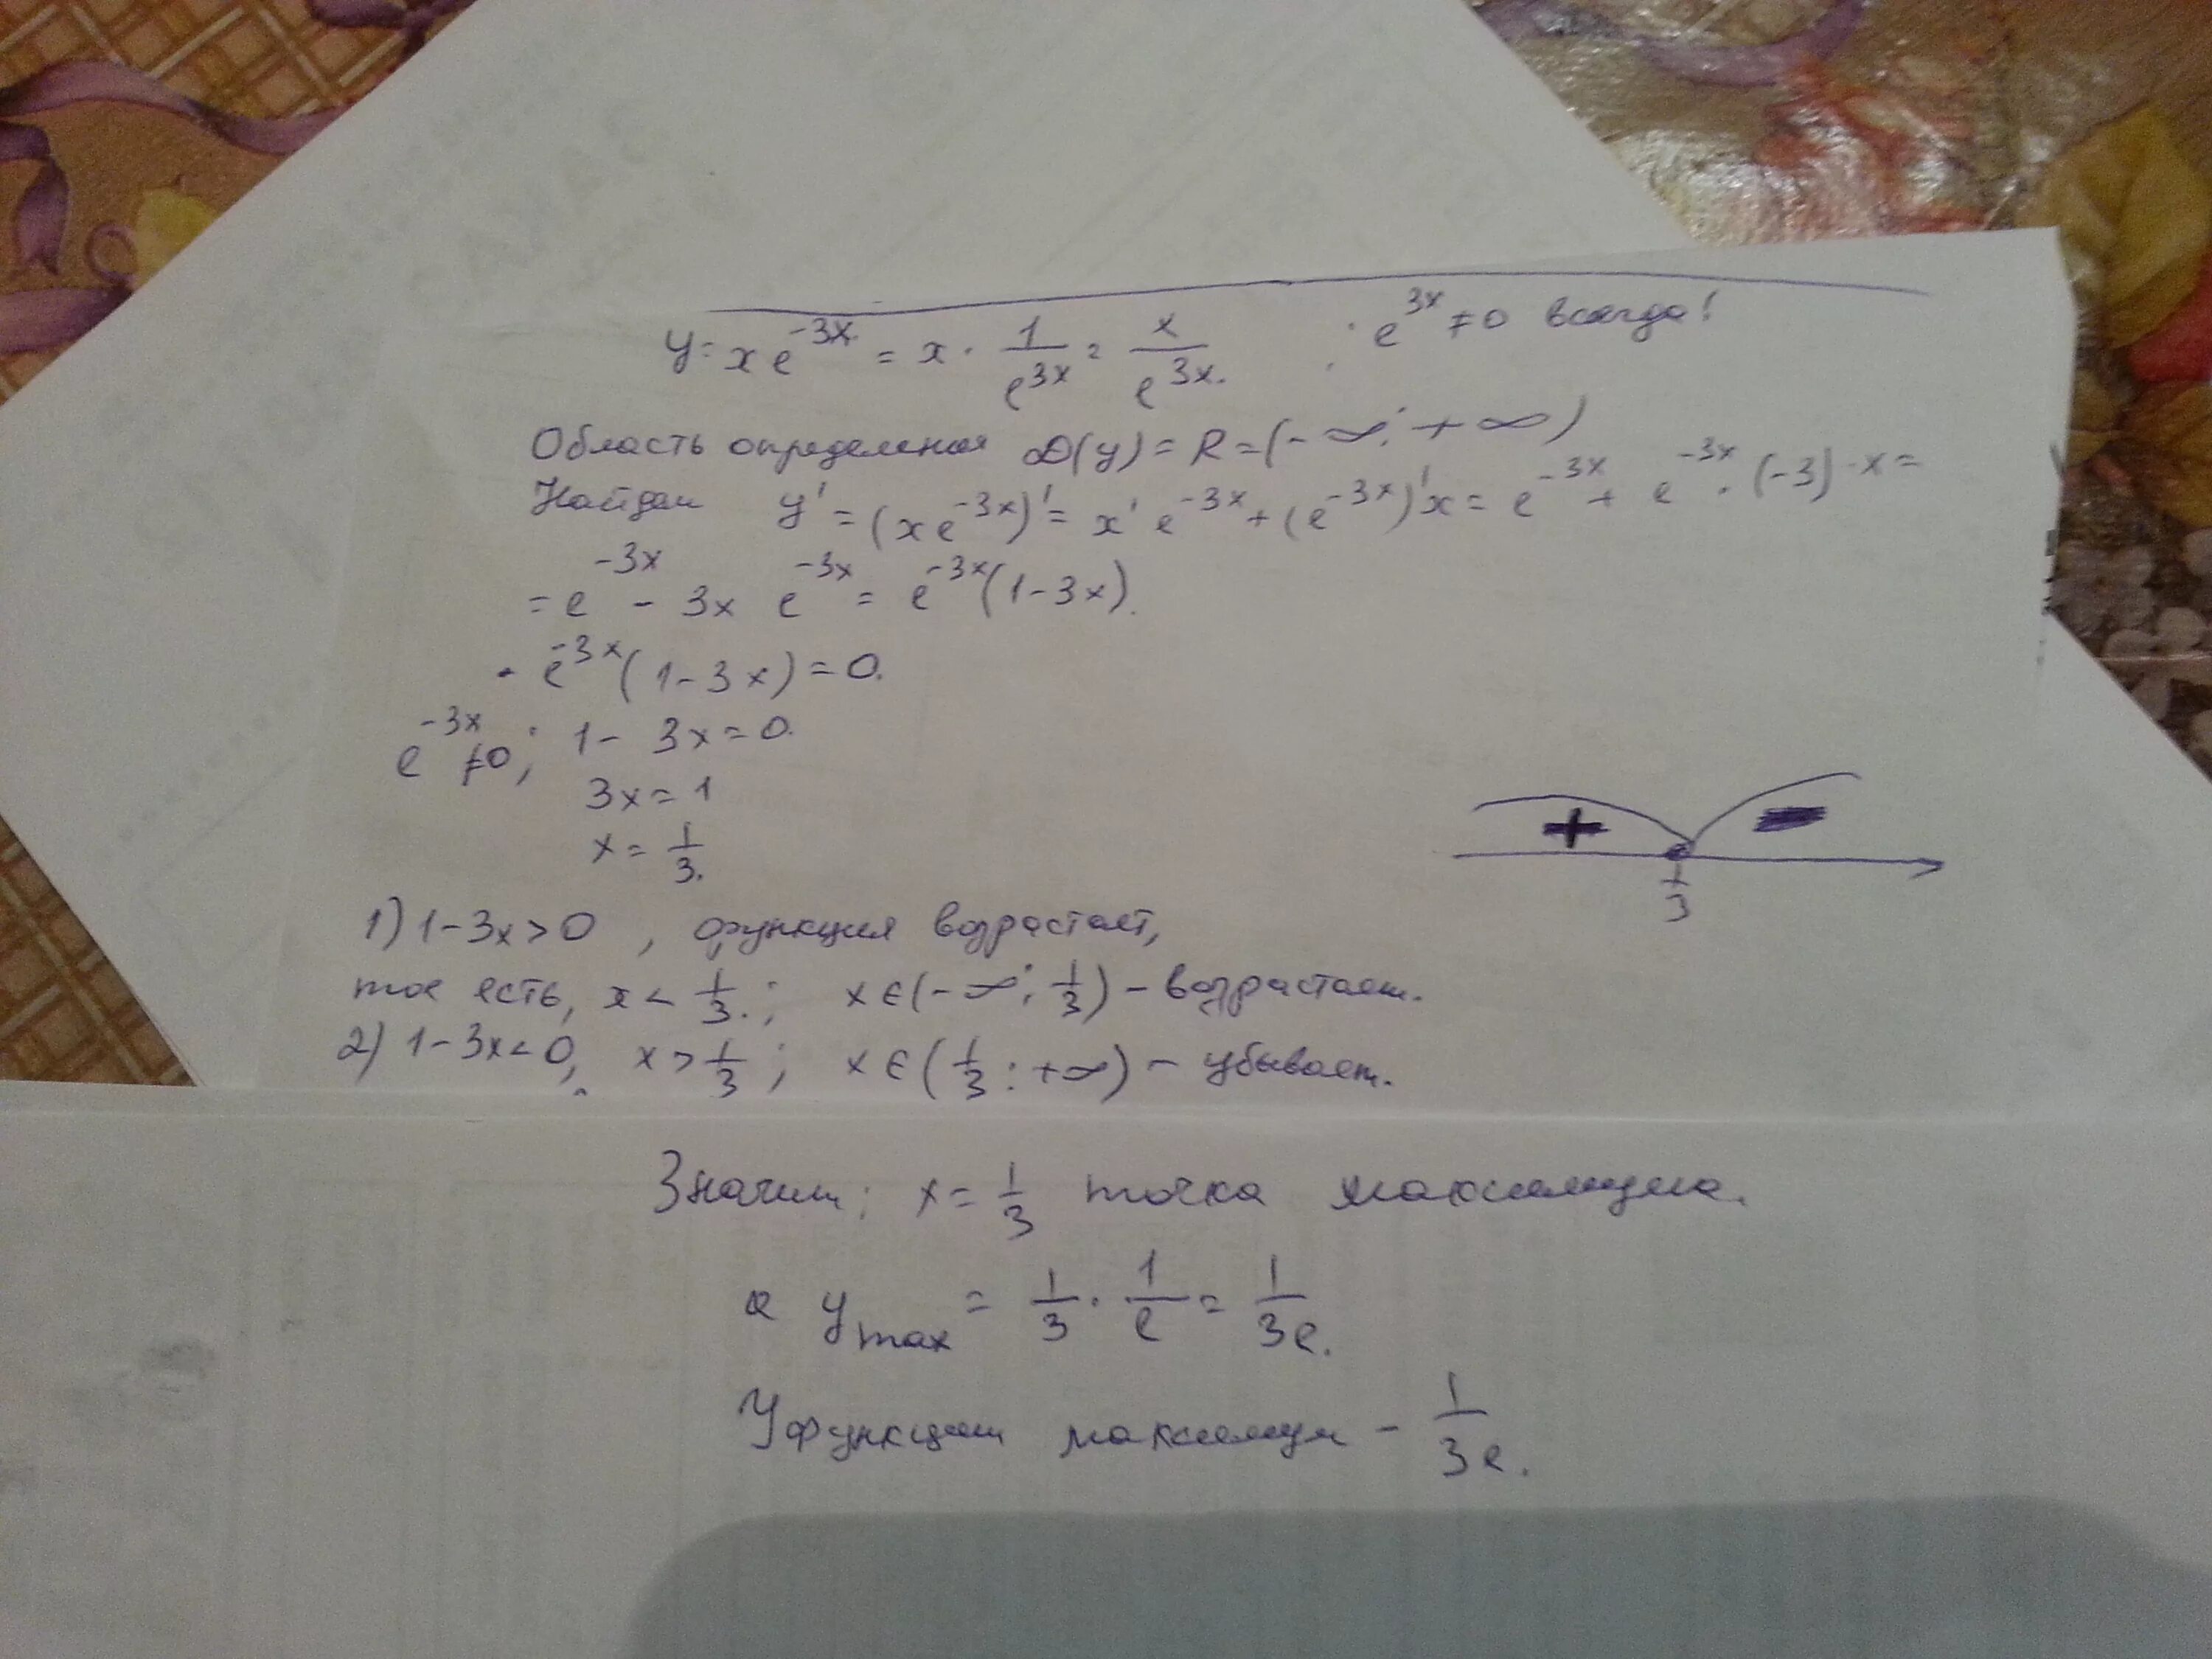 y = xe^{-3x} = x · 1/e^{3x} = x/e^{3x}. e^{3x} ≠ 0 всегда!
Область определения D(y) = R = (-∞; +∞)
Найдем y' = (xe^{-3x})' = x' e^{-3x} + (e^{-3x})' x = e^{-3x} + e^{-3x} · (-3) · x =
= e^{-3x} - 3x e^{-3x} = e^{-3x}(1-3x).
e^{-3x}(1-3x) = 0.
e^{-3x} ≠ 0; 1 - 3x = 0.
3x = 1
x = 1/3.
+ -
1/3
1) 1-3x > 0, функция возрастает,
то есть, x < 1/3.; x ∈ (-∞; 1/3) - возрастает.
2) 1-3x < 0, x > 1/3; x ∈ (1/3; +∞) - убывает.
Значит: x = 1/3 точка максимума.
а y_max = 1/3 · 1/e = 1/3e.
У функции максимум - 1/3e.